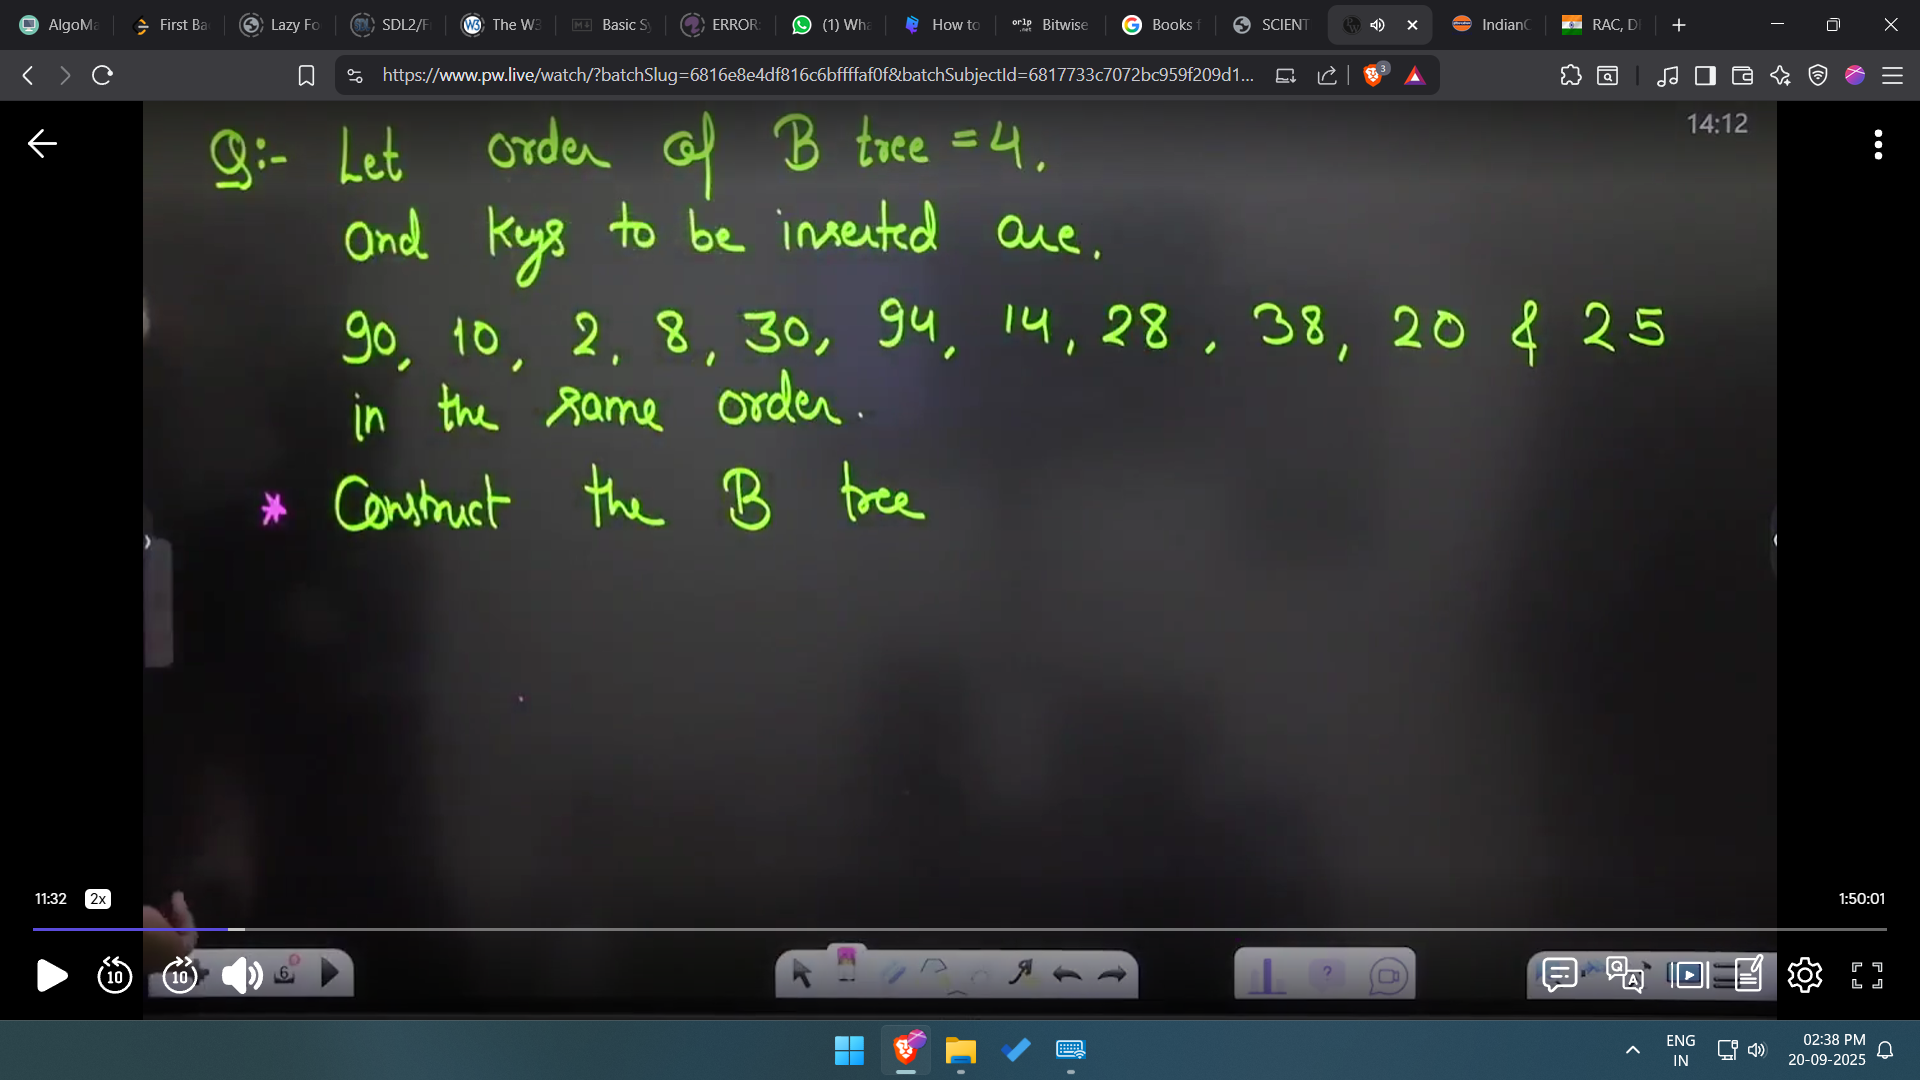 AlgoMa
First Ba
Lazy Fo
SDL2/F
The W3
Basic Sy
ERROR:
(1) Wha
How to
Bitwise
Books f
SCIENT
IndianC
RAC, D
https://www.pw.live/watch/?batchSlug=6816e8e4df816c6bffffaf0f&batchSubjectId=6817733c7072bc959f209d1...
3
14:12
Q:- Let order of B tree = 4.
and keys to be inserted are.
90, 10, 2, 8, 30, 94, 14, 28, 38, 20 & 25
in the same order.
* Construct the B tree
11:32 2x
1:50:01
10 10
6
ENG
IN
02:38 PM
20-09-2025